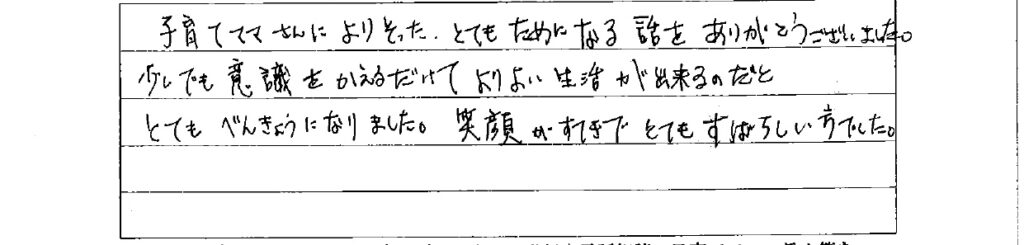 子育てママさんによりそった、とてもためになる話をありがとうございました。
少しでも意識をかえるだけでよりよい生活が出来るのだと
とてもべんきょうになりました。笑顔がすてきでとてもすばらしい方でした。